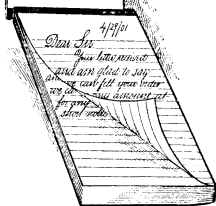 4/29/01
Dear Sir
Your letter received
and am glad to say
we can fill your order
we any amount at
for any
short notice